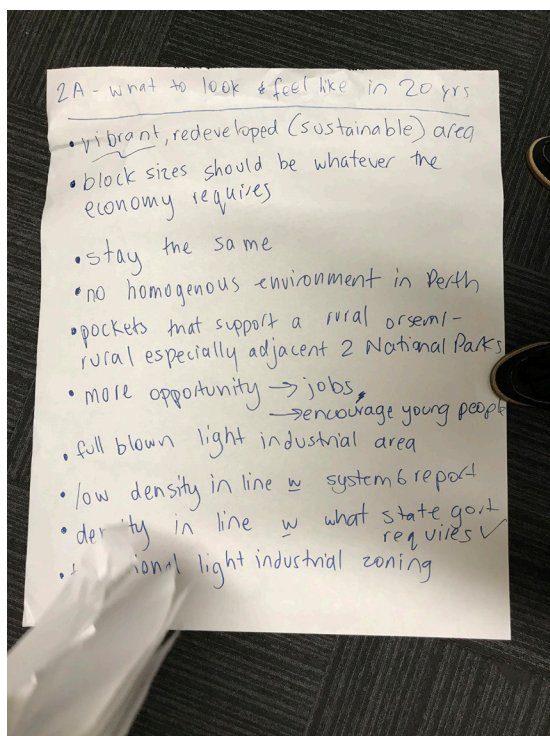 2A - what to look & feel like in 20 yrs
• vibrant, redeveloped (sustainable) area
• block sizes should be whatever the
economy requires
• stay the same
• no homogenous environment in Perth
• pockets that support a rural or semi-
rural especially adjacent 2 National Parks
• more opportunity → jobs,
→ encourage young people
• full blown light industrial area
• low density in line w system 6 report
• density in line w what state govt
requires ✓
• light industrial zoning